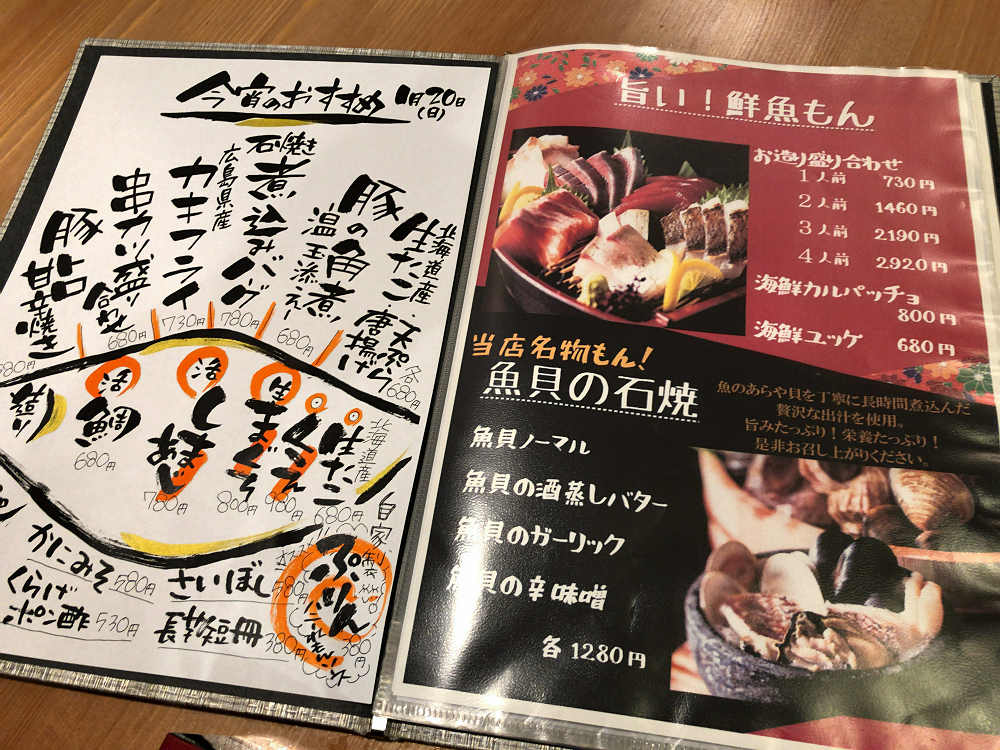 今宵のおすすめ 1月20日(日)
北海道産
生たこ・天ぷら 唐揚げ
各680円
豚の角煮
温玉添え
680円
石焼き
煮込みハンバーグ
780円
広島県産
カキフライ
730円
串カツ盛り合わせ
680円
豚
甘辛焼き
680円
北海道産
680円
980円
800円
780円
鯛
680円
かにみそ 580円
くらげ
酒ポン 530円
さいぼし 580円
長芋短冊 380円
自家製
ぷりん
380円
旨い!鮮魚もん
お造り盛り合わせ
1人前 730円
2人前 1460円
3人前 2190円
4人前 2920円
海鮮カルパッチョ
800円
海鮮ユッケ 680円
当店名物もん!
魚貝の石焼
魚のあらや貝を丁寧に長時間煮込んだ
贅沢な出汁を使用。
旨みたっぷり!栄養たっぷり!
是非お召し上がりください。
魚貝ノーマル
魚貝の酒蒸しバター
魚貝のガーリック
魚貝の辛味噌
各 1280円